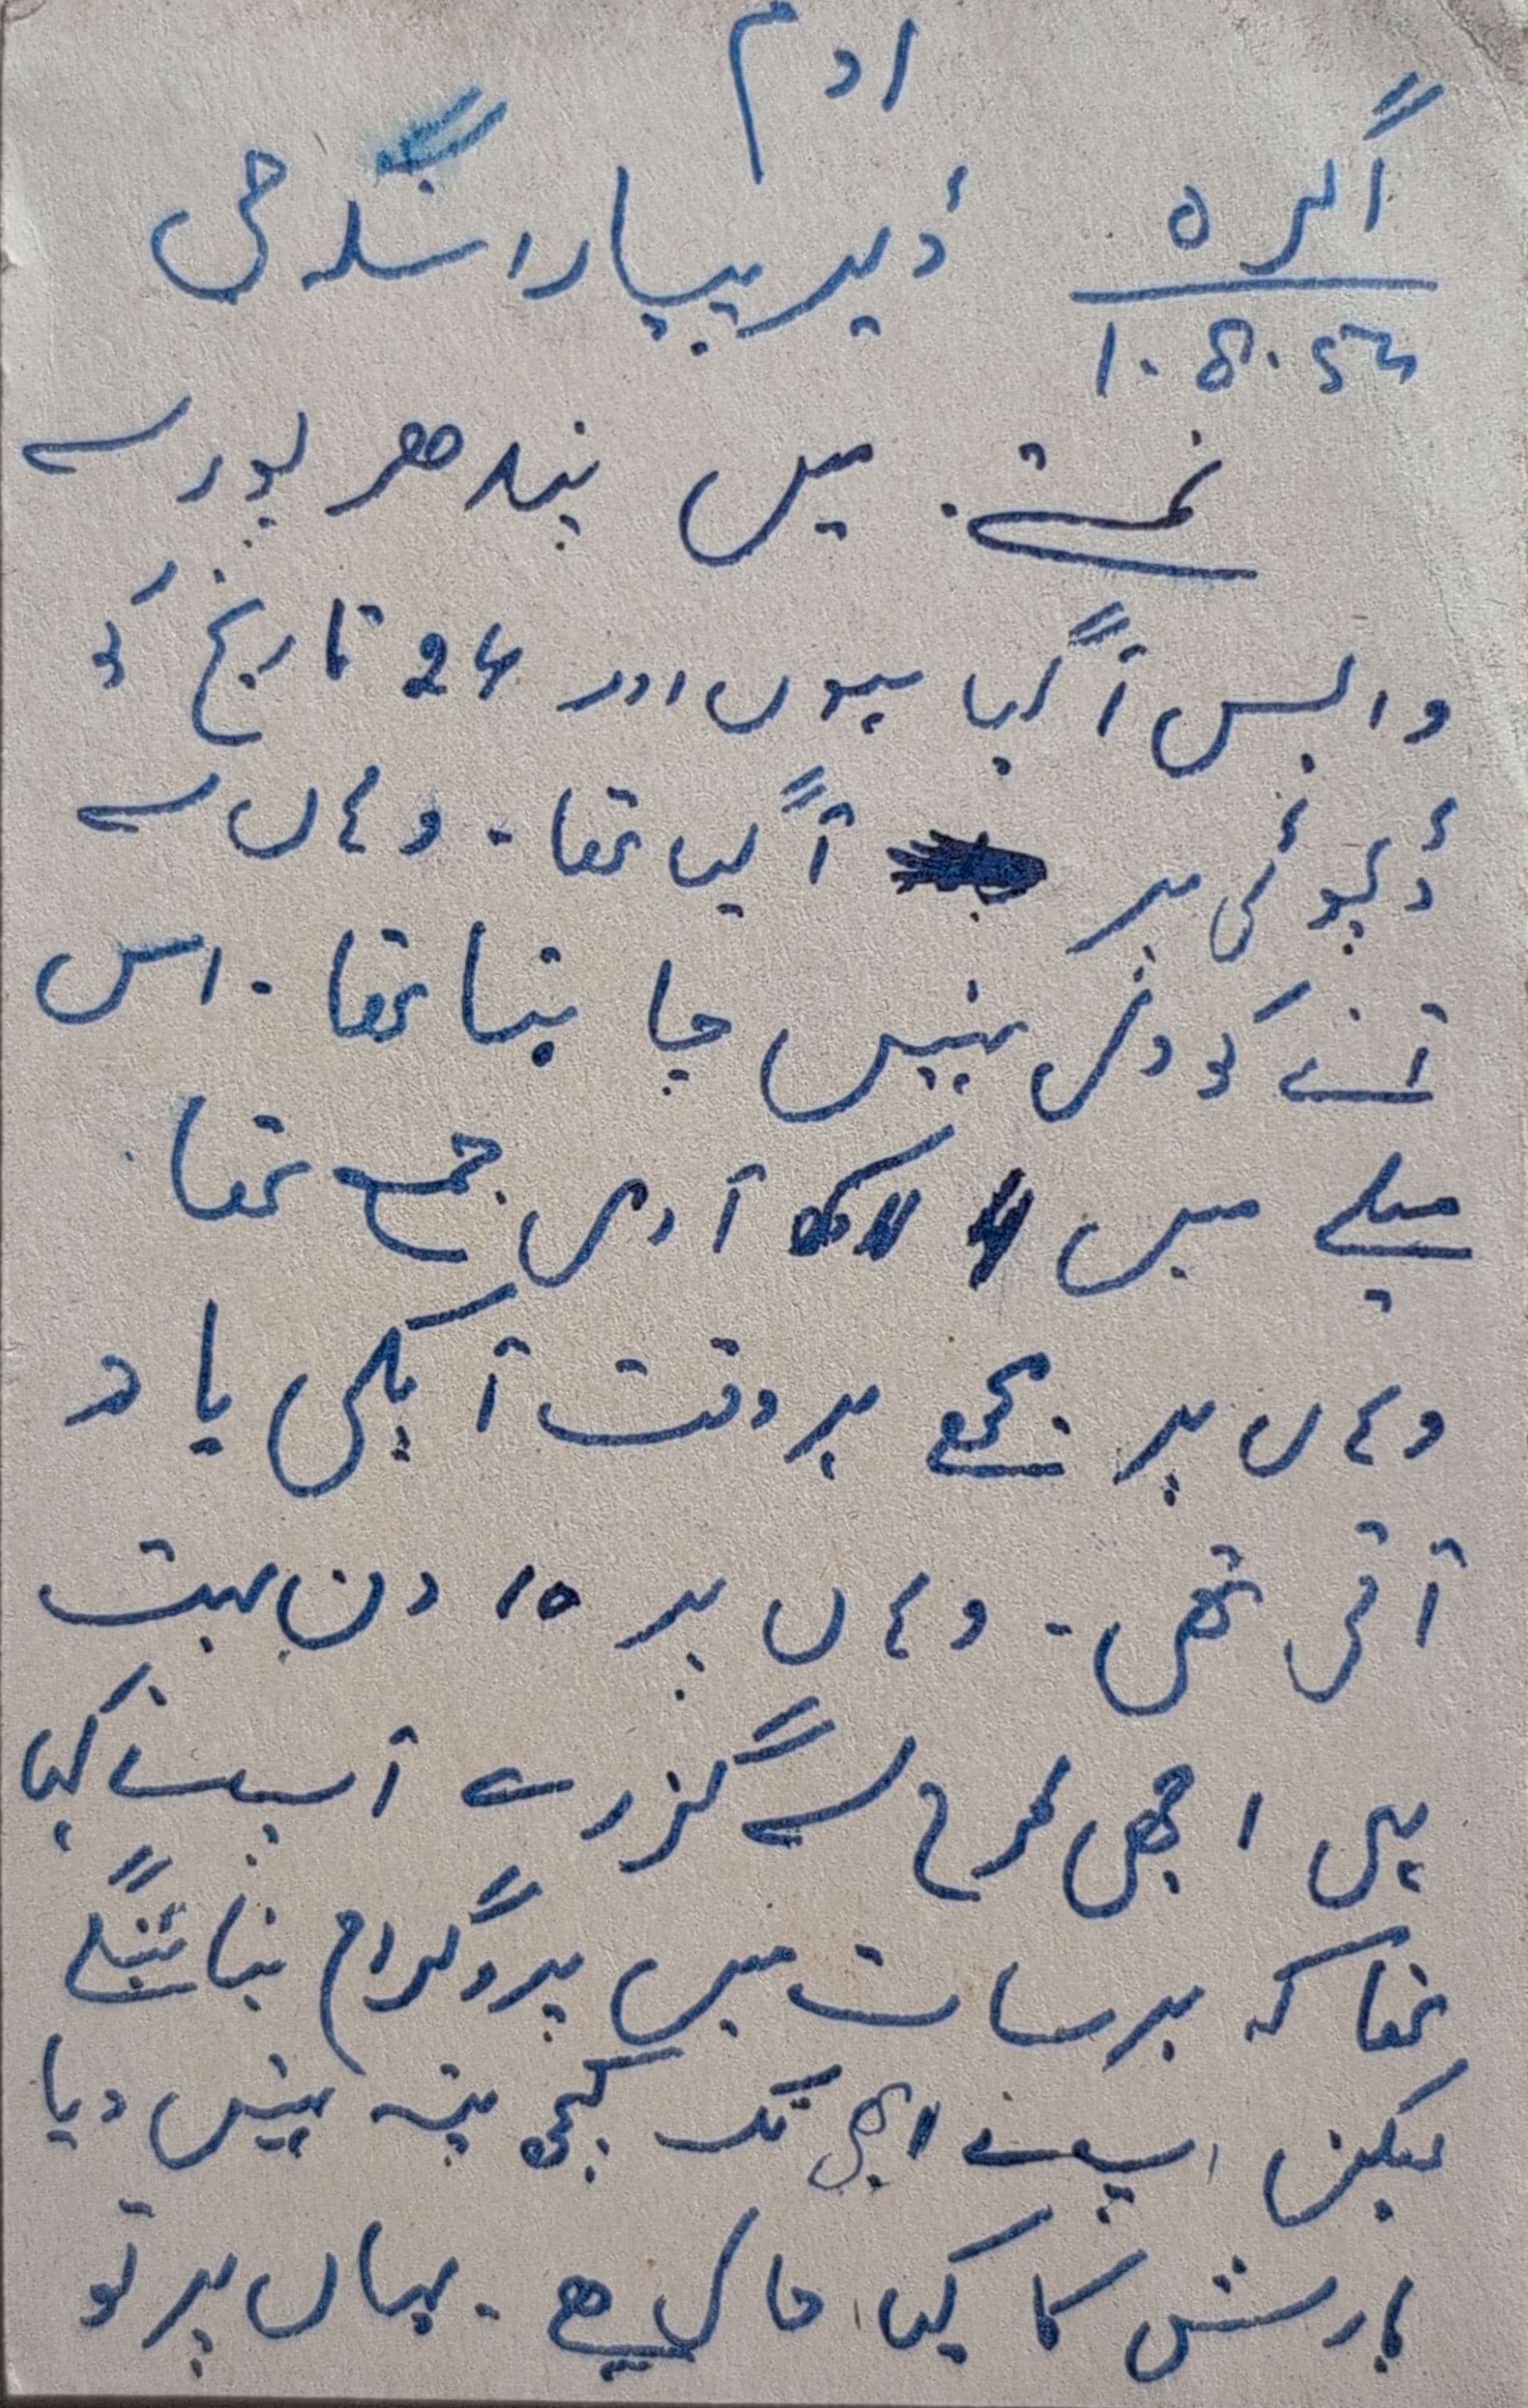 اوم
آگرہ
ڈیر پیارا سنگھ جی
1.8.53
نمستے. میں پنڈھر پور سے
واپس آ گیا ہوں اور 26 تاریخ کو
ڈیوٹی پر آ گیا تھا۔ وہاں سے
آنے کو دل نہیں چاہتا تھا۔ اس
میلے میں 4 لاکھ آدمی جمع تھا.
وہاں پر مجھے ہر وقت آپکی یاد
آتی تھی۔ وہاں پر 10 دن بہت
ہی اچھی طرح سے گزرے آپنے کہا
تھا کہ برسات میں پروگرام بنائینگے
لیکن اپنے ابھی تک کچھ پتہ نہیں دیا
بارش کا کیا حال ہے۔ یہاں پر تو